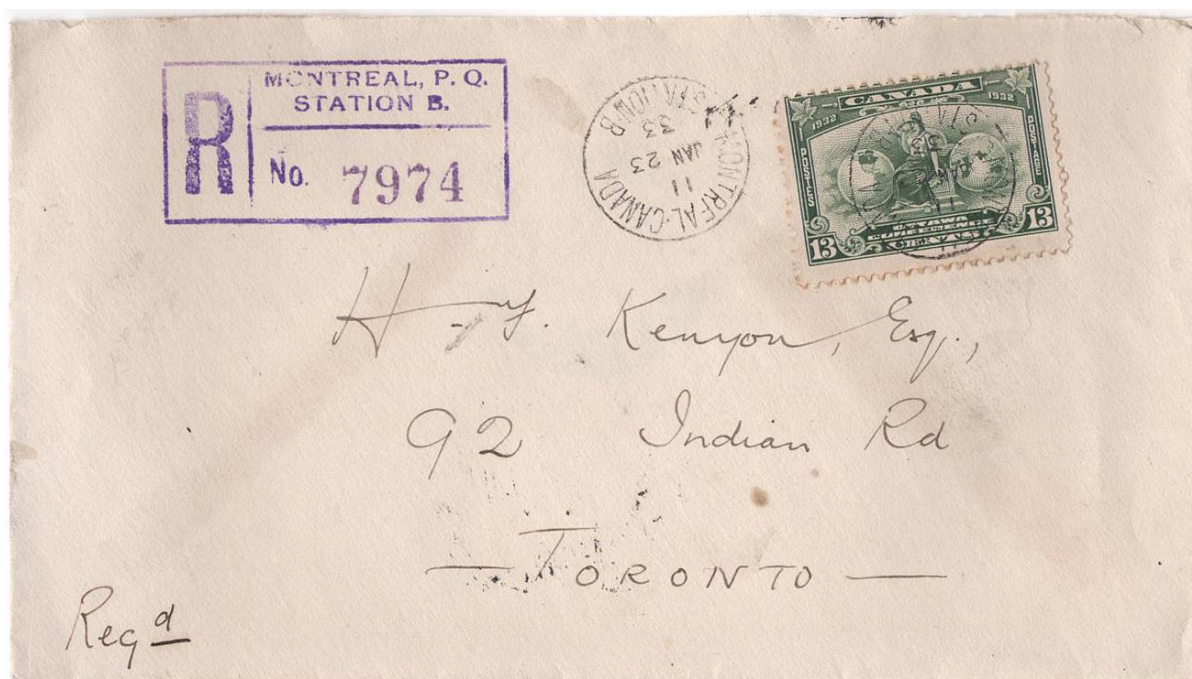 MONTREAL, P. Q.
STATION B.
R
No. 7974
MONTREAL·CANADA
STATION B
11
JAN 23
33
CANADA
1932 1932
POSTES POSTAGE
OTTAWA
CONFERENCE
OTTAWA
13 13
H. Kenyon, Esq.,
92 Indian Rd
— TORONTO —
Regd